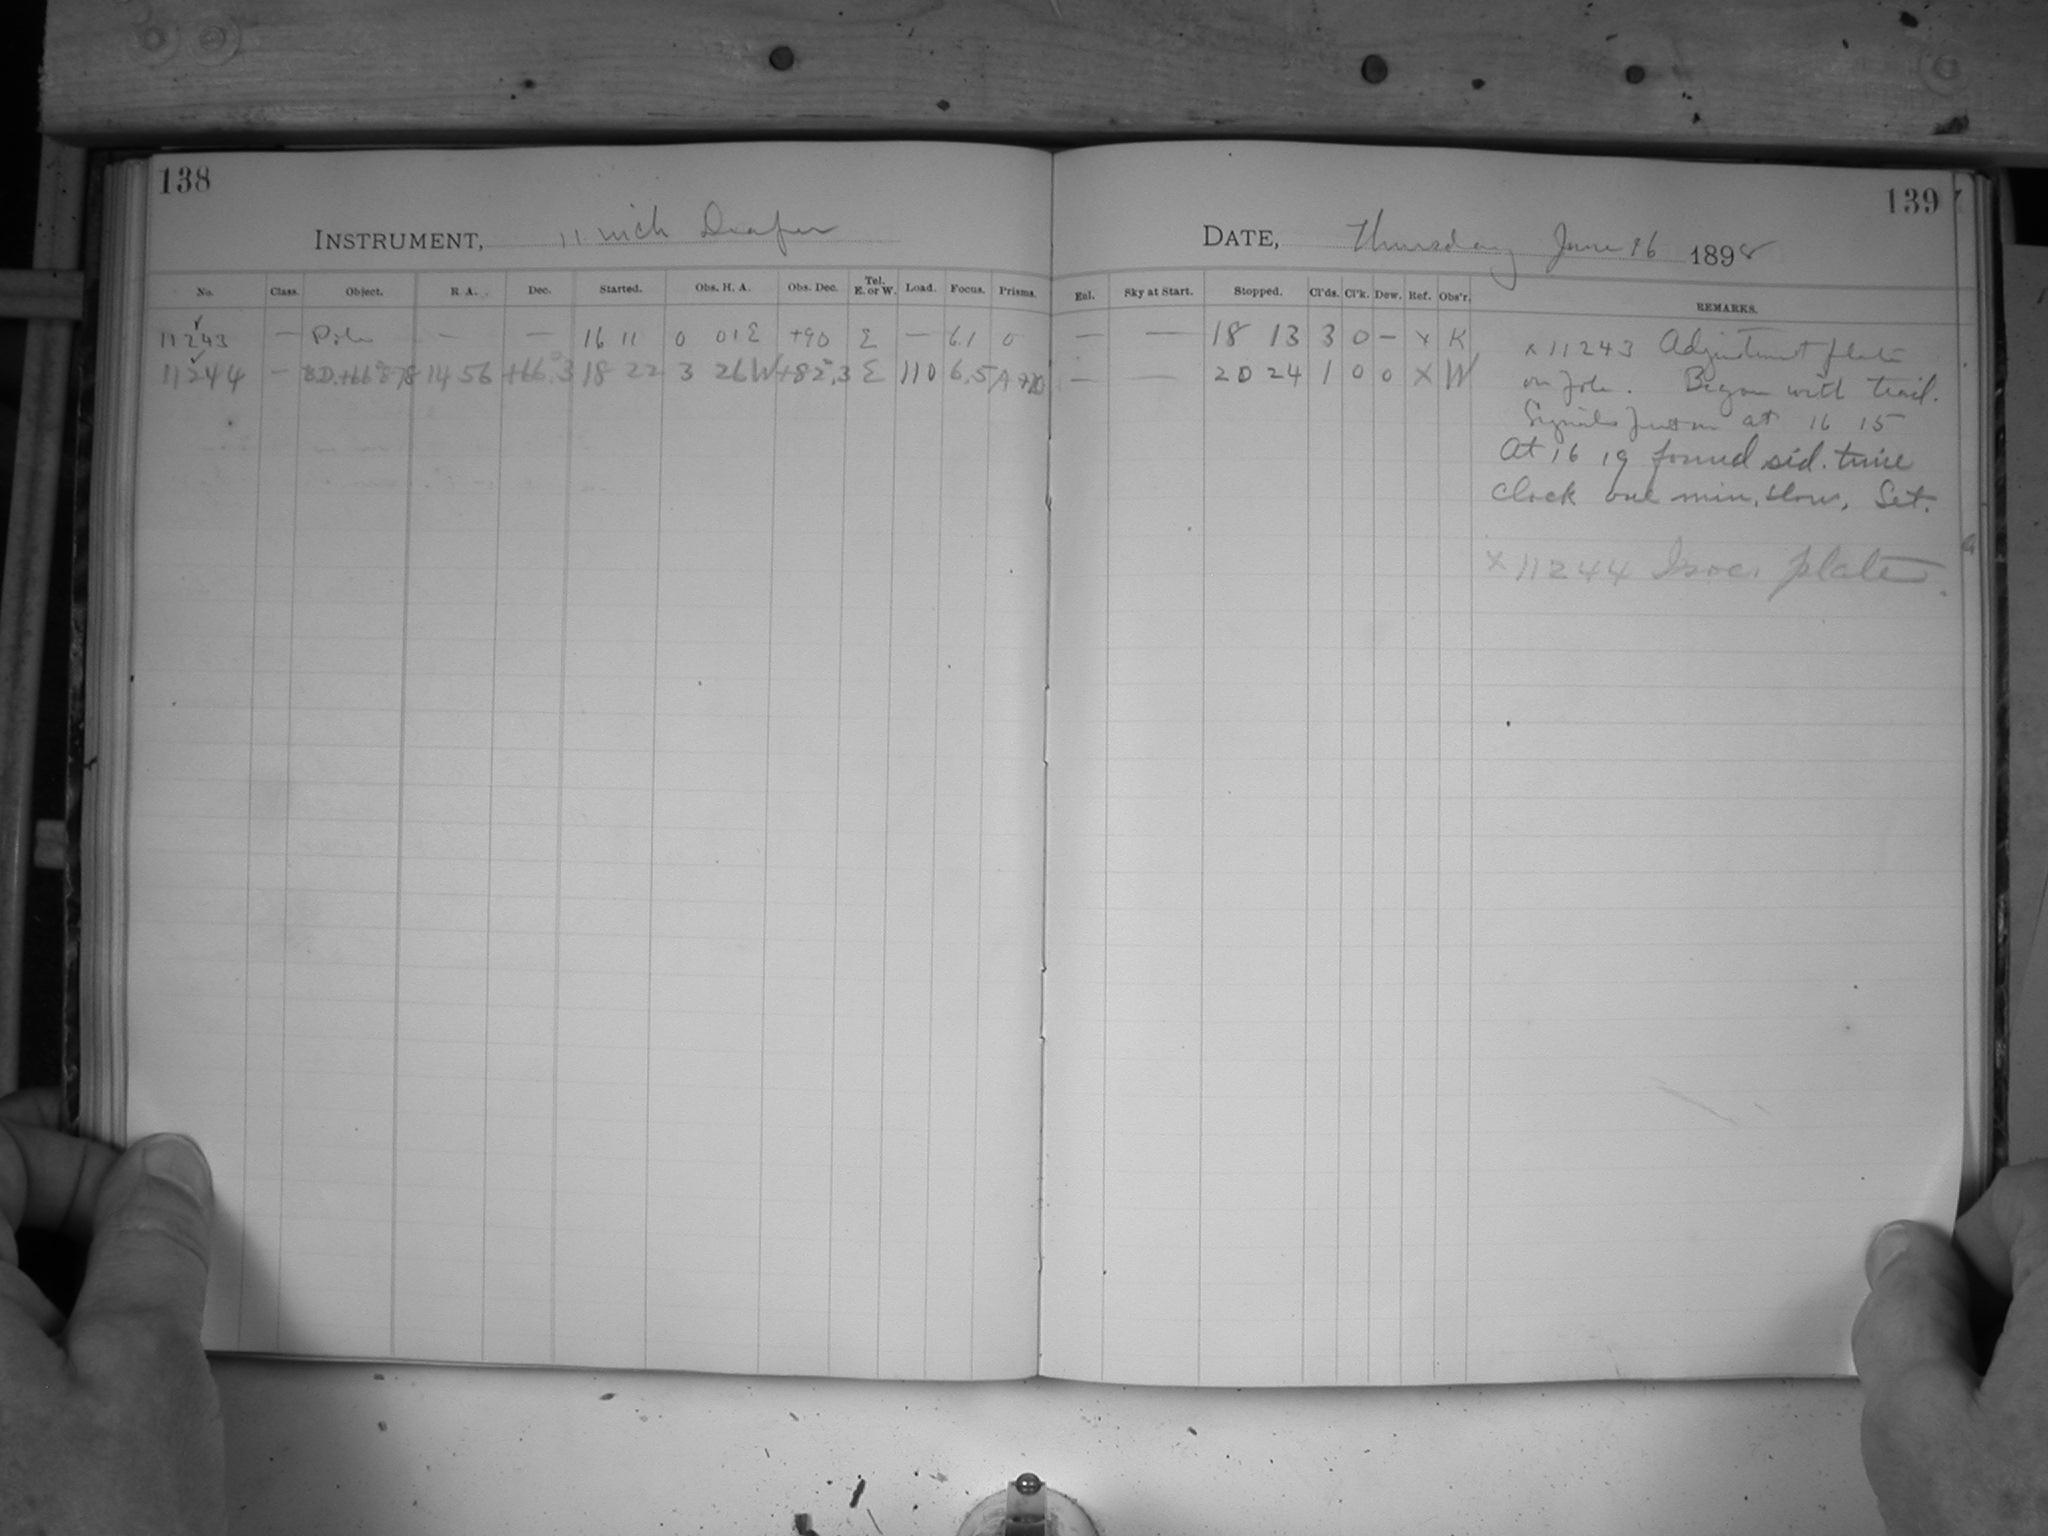 138
INSTRUMENT, 11 inch Draper
No. Class. Object. R. A. Dec. Started. Obs. H. A. Obs. Dec. Tel. E. or W. Load. Focus. Prisms.
11243 — Pole — — 16 11 0 01 E +90 E — 6.1 0
11244 — B.D.+66°878 14 56 +66.°3 18 22 3 26 W +82°.3 E 110 6.5
139
DATE, Thursday June 16 1898
Enl. Sky at Start. Stopped. Cl'ds. Cl'k. Dew. Ref. Obs'r. REMARKS.
— — 18 13 3 0 – x K
— — 20 24 1 0 0 X W
x 11243 Adjustment plate
on Pole. Began with trail.
Signals put on at 16 15
At 16 19 found sid. time
clock one min. slow, Set.
x 11244 Isoc. plate.